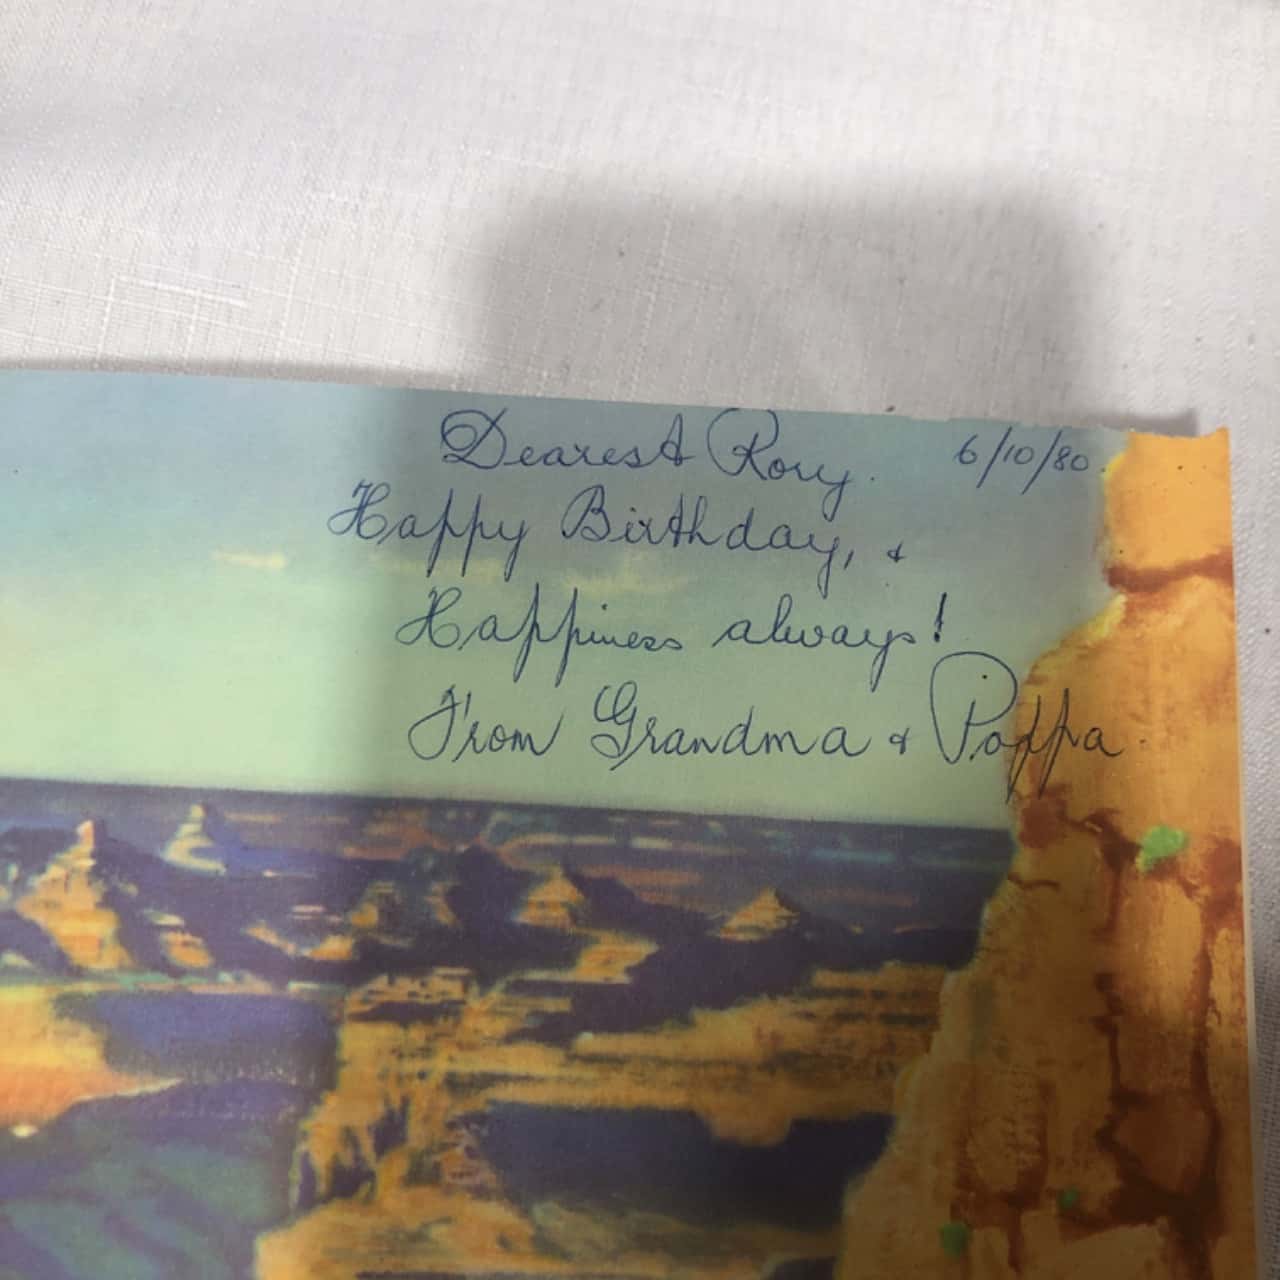 Dearest Rory. 6/10/80.
Happy Birthday, &
Happiness always!
From Grandma & Pappa.